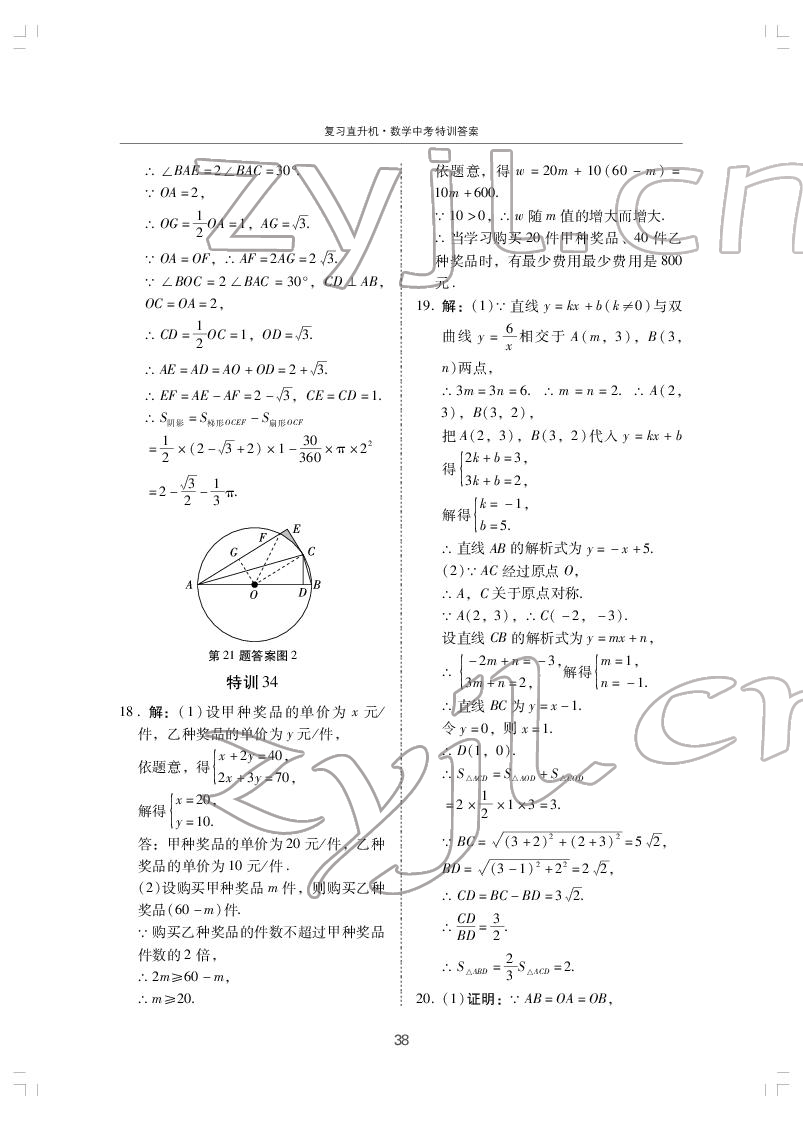 复习直升机·数学中考特训答案
∴ ∠BAE=2∠BAC=30°.
∵ OA=2,
∴ OG=1/2OA=1, AG=√3.
∵ OA=OF, ∴ AF=2AG=2√3.
∵ ∠BOC=2∠BAC=30°, CD⊥AB,
OC=OA=2,
∴ CD=1/2OC=1, OD=√3.
∴ AE=AD=AO+OD=2+√3.
∴ EF=AE-AF=2-√3, CE=CD=1.
∴ S阴影=S梯形OCEF-S扇形OCF
=1/2×(2-√3+2)×1-30/360×π×2²
=2-√3/2-1/3π.
E
F
G
C
A
O
D
B
第21题答案图2
特训34
18. 解:(1)设甲种奖品的单价为 x 元/
件,乙种奖品的单价为 y 元/件,
依题意,得{x+2y=40,
2x+3y=70,
解得{x=20,
y=10.
答:甲种奖品的单价为20元/件,乙种
奖品的单价为10元/件.
(2)设购买甲种奖品 m 件,则购买乙种
奖品(60-m)件.
∵ 购买乙种奖品的件数不超过甲种奖品
件数的2倍,
∴ 2m≥60-m,
∴ m≥20.
依题意,得 w=20m+10(60-m)=
10m+600.
∵ 10>0, ∴ w 随 m 值的增大而增大.
∴ 当学习购买20件甲种奖品、40件乙
种奖品时,有最少费用最少费用是800
元.
19. 解:(1)∵ 直线 y=kx+b(k≠0)与双
曲线 y=6/x 相交于 A(m,3),B(3,
n)两点,
∴ 3m=3n=6. ∴ m=n=2. ∴ A(2,
3),B(3,2),
把A(2,3),B(3,2)代入 y=kx+b
得{2k+b=3,
3k+b=2,
解得{k=-1,
b=5.
∴ 直线 AB 的解析式为 y=-x+5.
(2)∵ AC 经过原点 O,
∴ A,C关于原点对称.
∵ A(2,3), ∴ C(-2,-3).
设直线 CB 的解析式为 y=mx+n,
∴ {-2m+n=-3, 解得{m=1,
3m+n=2, n=-1.
∴ 直线 BC 为 y=x-1.
令 y=0,则 x=1.
∴ D(1,0).
∴ S△ACD=S△AOD+S△COD
=2×1/2×1×3=3.
∵ BC=√((3+2)²+(2+3)²)=5√2,
BD=√((3-1)²+2²)=2√2,
∴ CD=BC-BD=3√2.
∴ CD/BD=3/2.
∴ S△ABD=2/3S△ACD=2.
20. (1)证明:∵ AB=OA=OB,
38
zyjl.cn
zyjl.cn